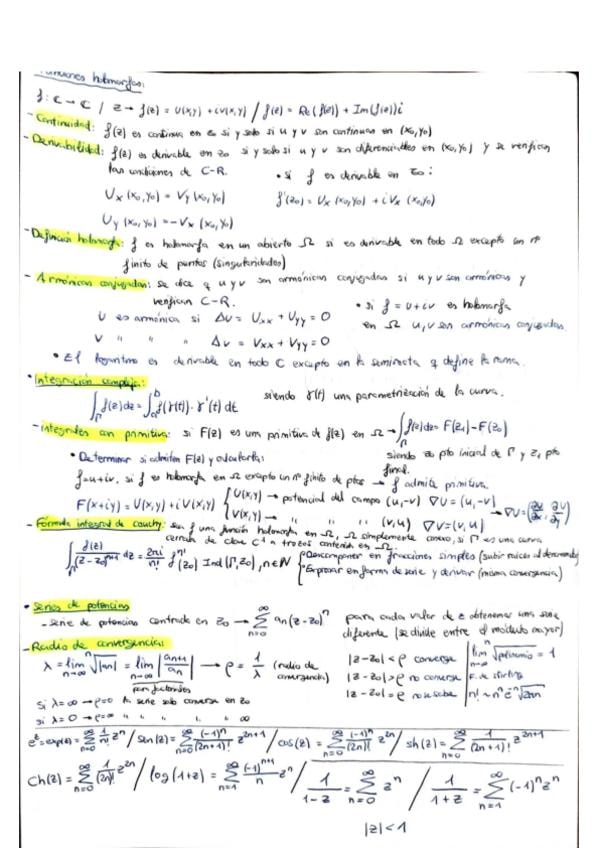 Funciones holomorfas:
f: ℂ → ℂ / z → f(z) = u(x,y) + iv(x,y) / f(z) = Re(f(z)) + Im(f(z))i
- Continuidad: f(z) es continua en z₀ si y solo si u y v son continuas en (x₀,y₀)
- Derivabilidad: f(z) es derivable en z₀ si y solo si u y v son diferenciables en (x₀,y₀) y se verifican
las condiciones de C-R. • si f es derivable en z₀:
Uₓ (x₀,y₀) = V_y (x₀,y₀) f'(z₀) = Uₓ (x₀,y₀) + i Vₓ (x₀,y₀)
U_y (x₀,y₀) = -Vₓ (x₀,y₀)
- Definición holomorfa: f es holomorfa en un abierto Ω si es derivable en todo Ω excepto un nº
finito de puntos (singularidades)
- Armónicas conjugadas: se dice q u y v son armónicas conjugadas si u y v son armónicas y
verifican C-R. • si f = u + iv es holomorfa
U es armónica si Δu = Uxx + Uyy = 0 en Ω u, v son armónicas conjugadas
V " " " Δv = Vxx + Vyy = 0
• El logaritmo es derivable en todo ℂ excepto en la semirrecta q define la rama.
• Integración compleja:
∫_Γ f(z)dz = ∫_a^b f(γ(t)) · γ'(t) dt siendo γ(t) una parametrización de la curva.
- integrales con primitiva: si F(z) es una primitiva de f(z) en Ω → ∫_Γ f(z)dz = F(z₁) - F(z₀)
• Determinar si admiten F(z) y calcularla: siendo z₀ pto inicial de Γ y z₁ pto
final.
f=u+iv, si f es holomorfa en Ω excepto un nº finito de ptos → f admite primitiva.
F(x+iy) = U(x,y) + i V(x,y) { U(x,y) → potencial del campo (u,-v) ∇U = (u,-v) → ∇U = (∂U/∂x, ∂U/∂y)
V(x,y) → " " " (v,u) ∇V = (v,u)
- Fórmula integral de cauchy: sea f una función holomorfa en Ω, Ω simplemente conexo, si Γ es una curva
cerrada de clase C¹ a trozos contenida en Ω:
∫_Γ f(z)/(z-z₀)ⁿ⁺¹ dz = 2πi/n! fⁿ⁾(z₀) Ind(Γ,z₀), n∈ℕ { Descomponer en fracciones simples (subir raíces al denominador)
Expresar en forma de serie y derivar (misma convergencia)
• Series de potencias
- serie de potencias centrada en z₀ → ∑_{n=0}^∞ an(z-z₀)ⁿ para cada valor de z obtenemos una serie
diferente (se divide entre el módulo mayor)
- Radio de convergencia:
λ = lim_{n→∞} ⁿ√|an| = lim_{n→∞} |an+1/an| → ρ = 1/λ (radio de convergencia) |z-z₀| < ρ converge lim_{n→∞} ⁿ√polinomio = 1
para factoriales |z-z₀| > ρ no converge F. de stirling
si λ = ∞ → ρ=0 la serie solo converge en z₀ |z-z₀| = ρ no se sabe n! ~ nⁿ e⁻ⁿ √2πn
si λ = 0 → ρ=∞ " " " " " ∞
eᶻ = exp(z) = ∑_{n=0}^∞ 1/n! zⁿ / sen(z) = ∑_{n=0}^∞ (-1)ⁿ/(2n+1)! z²ⁿ⁺¹ / cos(z) = ∑_{n=0}^∞ (-1)ⁿ/(2n)! z²ⁿ / sh(z) = ∑_{n=0}^∞ 1/(2n+1)! z²ⁿ⁺¹
Ch(z) = ∑_{n=0}^∞ 1/(2n)! z²ⁿ / log(1+z) = ∑_{n=1}^∞ (-1)ⁿ⁺¹/n zⁿ / 1/(1-z) = ∑_{n=0}^∞ zⁿ / 1/(1+z) = ∑_{n=1}^∞ (-1)ⁿ zⁿ
|z| < 1